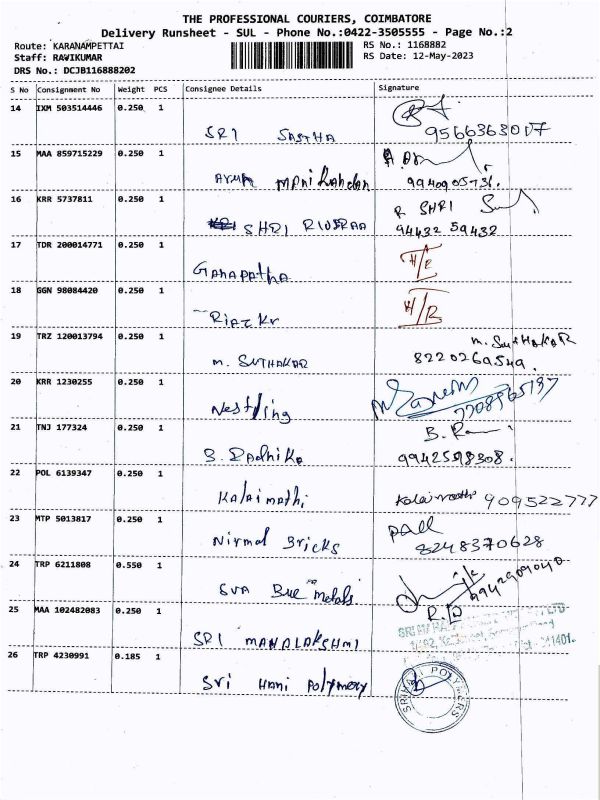 THE PROFESSIONAL COURIERS, COIMBATORE
Delivery Runsheet - SUL - Phone No.:0422-3505555 - Page No.:2
Route: KARANAMPETTAI RS No.: 1168882
Staff: RAVIKUMAR RS Date: 12-May-2023
DRS No.: DCJB116888202
S No Consignment No Weight PCS Consignee Details Signature
14 IXM 503514446 0.250 1
SRI SASTHA 9566363017
15 MAA 859715229 0.250 1
Arun Manikandan
16 KRR 5737811 0.250 1 R SHRI
SHRI 94432 59432
17 TDR 200014771 0.250 1
Ganapatha
18 GGN 98084420 0.250 1
19 TRZ 120013794 0.250 1 M. SUTHAKAR
M. SUTHAKAR
20 KRR 1230255 0.250 1
Nestling
21 TNJ 177324 0.250 1
22 POL 6139347 0.250 1
Kalaimathi Kalaimathi 909522777
23 MTP 5013817 0.250 1
Nirmal Bricks 8248370628
24 TRP 6211808 0.550 1
Blue Metals
25 MAA 102482083 0.250 1
SRI MAHALAKSHMI
26 TRP 4230991 0.185 1
Sri Hari Polymers
SRI HARI POLYMERS